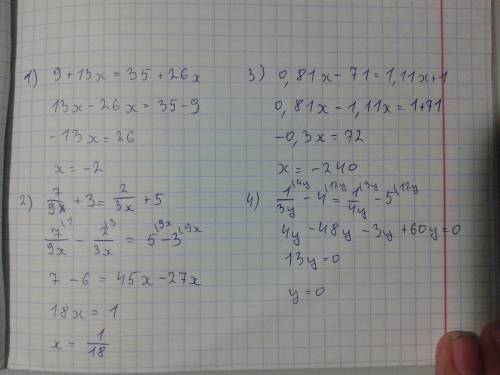 1) 9+13x=35+26x
13x-26x=35-9
-13x=26
x=-2
2) 7/9x + 3 = 2/3x + 5
7/9x - 2/3x^(3 = 5^(9x - 3^(9x
7-6=45x-27x
18x=1
x=1/18
3) 0,81x-71=1,11x+1
0,81x-1,11x=1+71
-0,3x=72
x=-240
4) 1/3y^(4y - 4^(12y = 1/4y^(3y - 5^(12y
4y-48y-3y+60y=0
13y=0
y=0